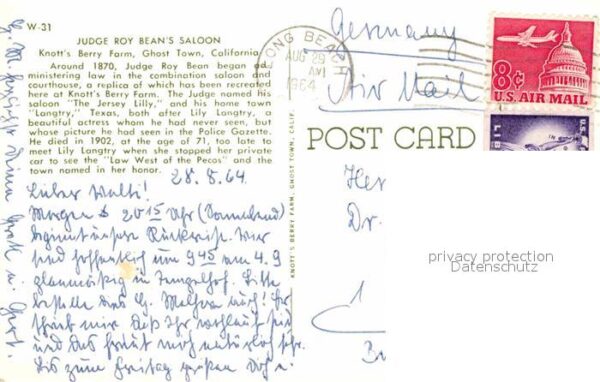 W-31
JUDGE ROY BEAN'S SALOON
Knott's Berry Farm, Ghost Town, California
Around 1870, Judge Roy Bean began ad-
ministering law in the combination saloon and
courthouse, a replica of which has been recreated
here at Knott's Berry Farm. The Judge named his
saloon "The Jersey Lilly," and his home town
"Langtry," Texas, both after Lily Langtry, a
beautiful actress whom he had never seen, but
whose picture he had seen in the Police Gazette.
He died in 1902, at the age of 71, too late to
meet Lily Langtry when she stopped her private
car to see the "Law West of the Pecos" and the
town named in her honor.
28.8.64
Lieber Walti!
Morgen 2015 Uhr (Sonnabend)
beginnt unsere Rückreise. Wir
sind hoffentlich um 945 am 4.9
planmäßig in Tempelhof. Bitte
bestelle das G. auch! Ihr
schreibt mir daß Ihr wohlauf seid
und das freut mich natürlich sehr.
Bis zum Freitag grüßen Dich u.
LONG BEACH
AUG 29
AM
1964
Germany
Air Mail
8¢
U.S. AIR MAIL
POST CARD
KNOTT'S BERRY FARM, GHOST TOWN, CALIF.
Her
Dr.
1
privacy protection
Datenschutz